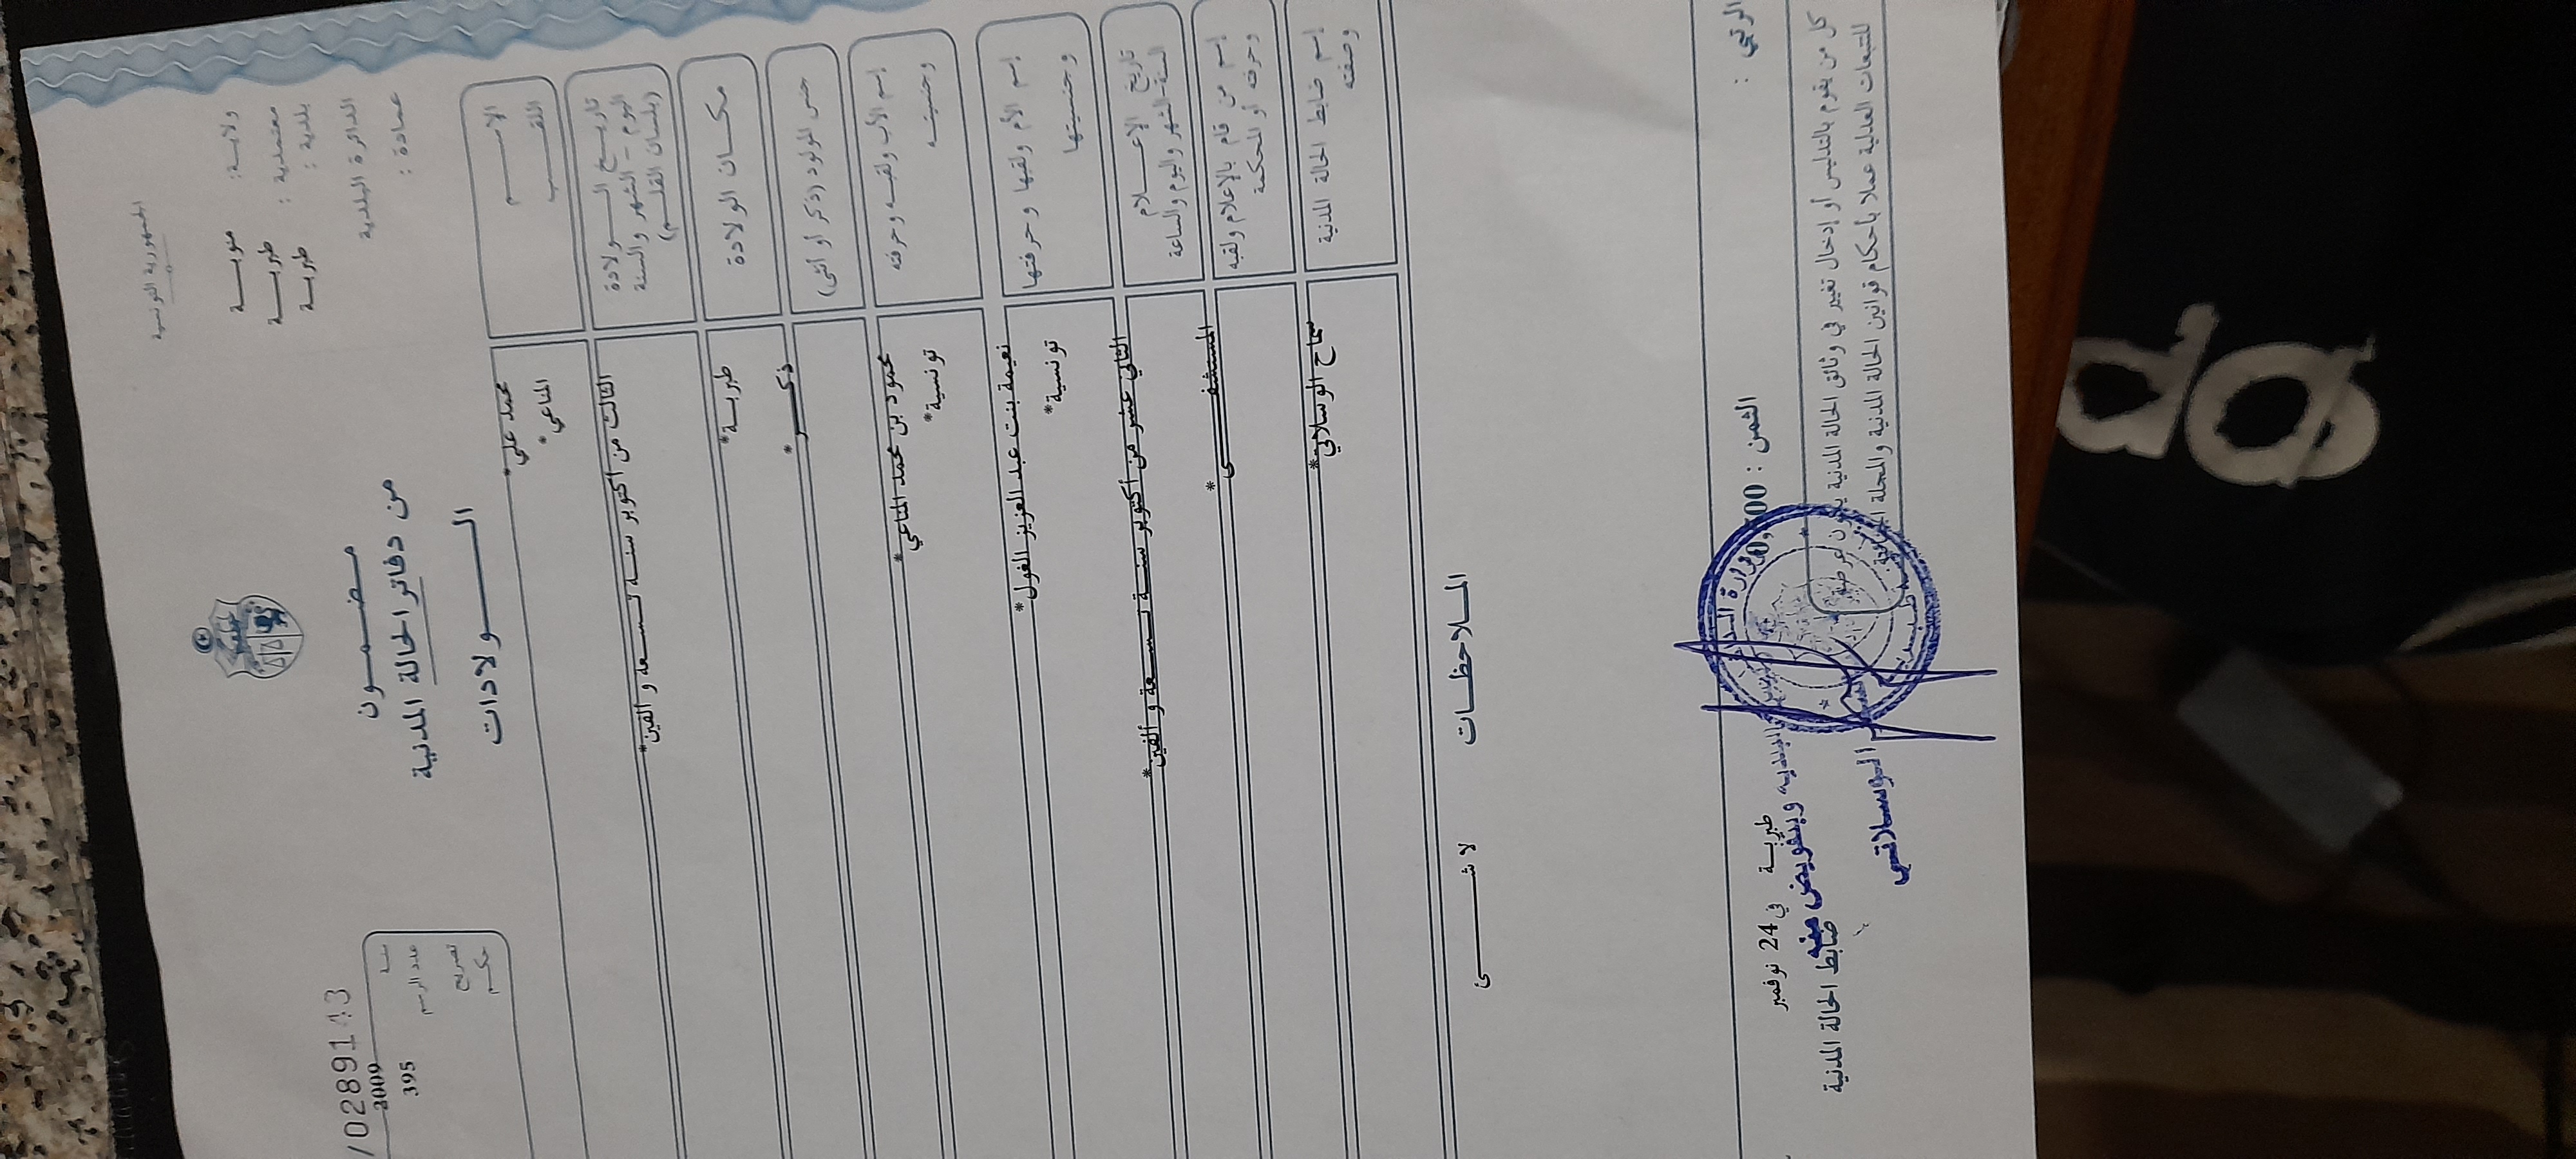 الجمهورية التونسية
ولاية: منوبة
معتمدية: طبربة
بلدية: طبربة
الدائرة البلدية
عمادة:
مضمون
من دفاتر الحالة المدنية
الولادات
/02891143
سنة 2009
عدد الرسم 395
تصريح
حكم
الاسم محمد علي*
اللقب المناعي*
تاريخ الولادة
اليوم - الشهر والسنة
(بلسان القلم)
الثالث من أكتوبر سنة تسعة و ألفين*
مكان الولادة طبربة*
جنس المولود (ذكر أو أنثى) ذكر*
إسم الأب ولقبه وحرفته محمود بن محمد المناعي*
وجنسيته تونسية*
إسم الأم ولقبها وحرفتها نعيمة بنت عبد العزيز الغول*
وجنسيتها تونسية*
تاريخ الإعلام
السنة-الشهر واليوم والساعة
الثاني عشر من أكتوبر سنة تسعة و ألفين*
إسم من قام بالإعلام ولقبه
وحرفته أو المحكمة
المستشفى*
إسم ضابط الحالة المدنية
وصفته
سماح الوسلاتي*
الملاحظات
لا شئ
الثمن :
طبربة في 24 نوفمبر
وبتفويض منه
ضابط الحالة المدنية
الوسلاتي
كل من يقوم بالتدليس أو إدخال تغيير في وثائق الحالة المدنية يكون عرضة
للتتبعات العدلية عملا بأحكام قوانين الحالة المدنية والمجلة الجنائية.
do